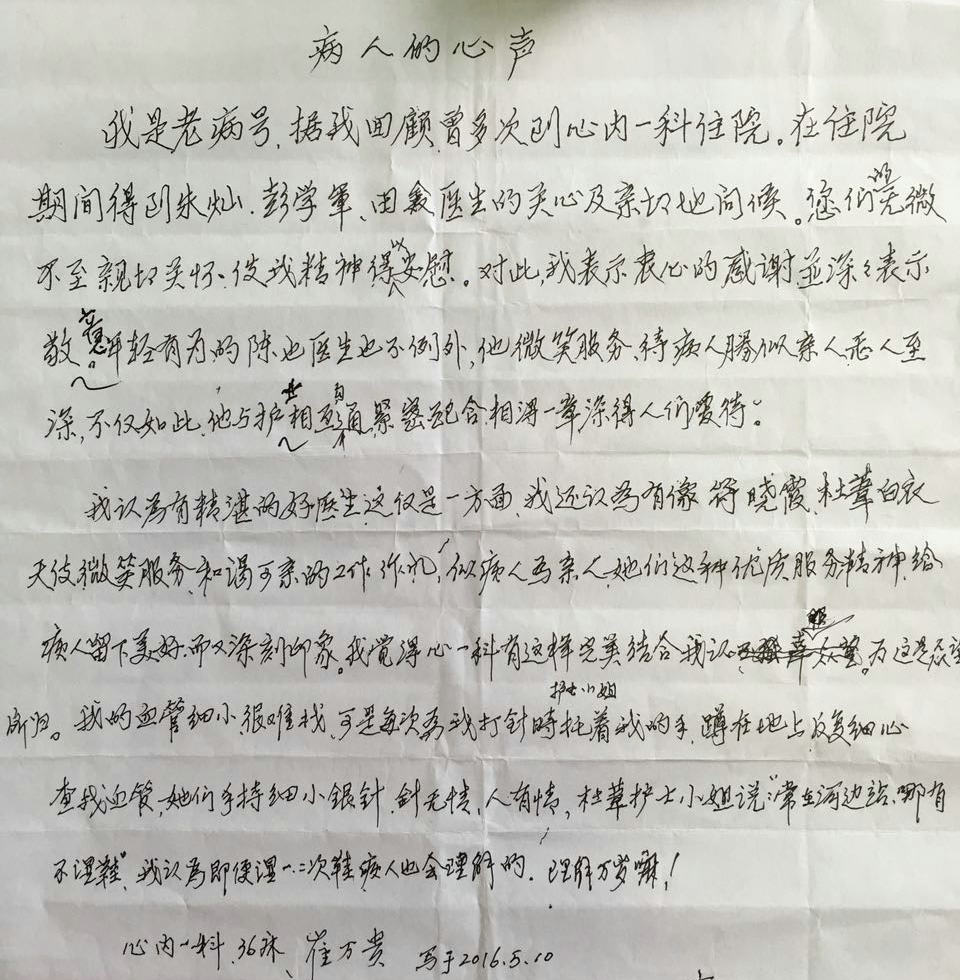 病人的心声
我是老病号,据我回顾,曾多次到心内一科住院。在住院
期间得到朱灿、彭学军、由鑫医生的关心及亲切地问候。您们无微
不至親切关怀使我精神得以安慰。对此,我表示衷心的感谢並深々表示
敬意。年轻有为的陈也医生也不例外,他微笑服务,待病人勝似亲人,感人至
深,不仅如此,他与护士相互沟通,紧密配合,相得一章深得人们爱待。
我认為有精湛的好医生这仅是一方面,我还认為有像符晓霞、杜葦白衣
天使微笑服务,和谒可亲的工作作风,似病人为亲人,她们这种优质服务精神,给
病人留下美好而又深刻印象。我觉得心一科有这样完美结合我认为这是众望
所归。我的血管细小很难找,可是每次护士小姐為我打针時托着我的手,蹲在地上反复细心
查找血管,她们手持细小银针,针无情,人有情,杜葦护士小姐说"常在河边站,哪有
不湿鞋",我认為即便湿一二次鞋病人也会理解的.理解万岁嘛!
心内一科 36床、崔万贵 写于2016.5.10